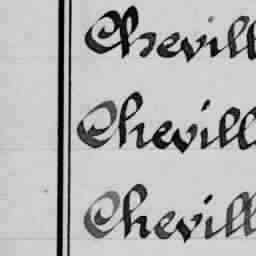 Chevill
Chevill
Chevill